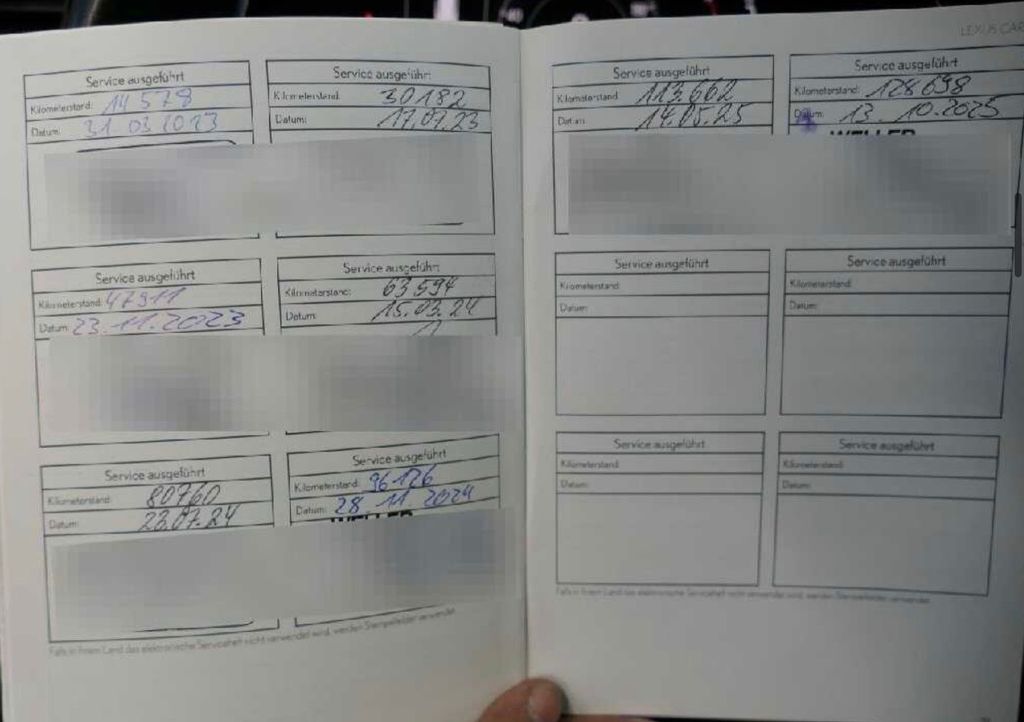 LEXUS CAR
Service ausgeführt
Kilometerstand: 14 578
Datum: 31.03.2023
Service ausgeführt
Kilometerstand: 30182
Datum: 17.07.23
Service ausgeführt
Kilometerstand: 47911
Datum: 23.11.2023
Service ausgeführt
Kilometerstand: 63594
Datum: 15.03.24
Service ausgeführt
Kilometerstand: 80760
Datum: 23.07.24
Service ausgeführt
Kilometerstand: 96126
Datum: 28.11.2024
WELLER
Falls in Ihrem Land das elektronische Serviceheft nicht verwendet wird, werden Stempelfelder verwendet
Service ausgeführt
Kilometerstand: 113.662
Datum: 14.05.25
Service ausgeführt
Kilometerstand: 128698
Datum: 13.10.2025
WELLER
Service ausgeführt
Kilometerstand:
Datum:
Service ausgeführt
Kilometerstand:
Datum:
Service ausgeführt
Kilometerstand:
Datum:
Service ausgeführt
Kilometerstand:
Datum:
Falls in Ihrem Land das elektronische Serviceheft nicht verwendet wird, werden Stempelfelder verwendet